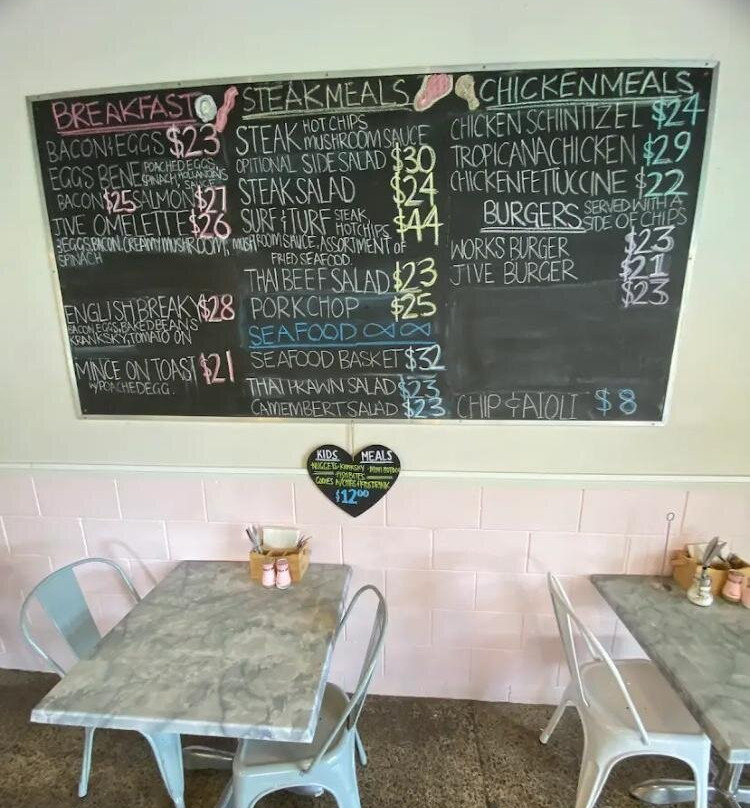 BREAKFAST
BACON & EGGS $23
EGGS BENE POACHED EGGS,
SPINACH, HOLLANDAISE
BACON $25 SALMON $27
JIVE OMELETTE $26
3 EGGS, BACON, CREAMY MUSHROOM,
SPINACH
ENGLISH BREAKY $28
BACON, EGGS, BAKED BEANS
KRANKSKY, TOMATO ON
MINCE ON TOAST $21
W/POACHED EGG.
STEAK MEALS
STEAK HOT CHIPS
MUSHROOM SAUCE
OPTIONAL SIDE SALAD $30
STEAK SALAD $24
SURF & TURF STEAK $44
HOT CHIPS
MUSHROOM SAUCE, ASSORTMENT OF
FRIED SEAFOOD.
THAI BEEF SALAD $23
PORK CHOP $25
SEAFOOD
SEAFOOD BASKET $32
THAI PRAWN SALAD $23
CAMEMBERT SALAD $23
CHICKEN MEALS
CHICKEN SCHINITZEL $24
TROPICANA CHICKEN $29
CHICKEN FETTUCCINE $22
BURGERS SERVED WITH A
SIDE OF CHIPS
$23
WORKS BURGER $21
JIVE BURGER $23
CHIP & AIOLI $8
KIDS MEALS
NUGGETS - KRANSKY - MINI HOTDOG
FISHBITES
COMES W/CHIPS & KIDS DRINK
$12.00